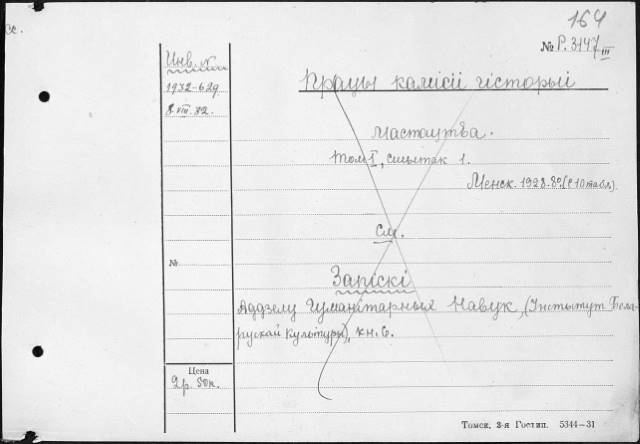 164
№ Р. 3147 III
Инв. №
Працы камісіі гісторыі
1932-629
8 VIII. 32.
Мастацтва.
Том I, сшытак 1.
Менск. 1928. 8º. (с 10 табл.)
См.
№
Запіскі
Аддзелу Гуманітарных Навук, (Інстытут Бела-
рускай Культуры), кн. 6.
Цена
2 р. 50 к.
Томск. 3-я Гостип. 5344—31